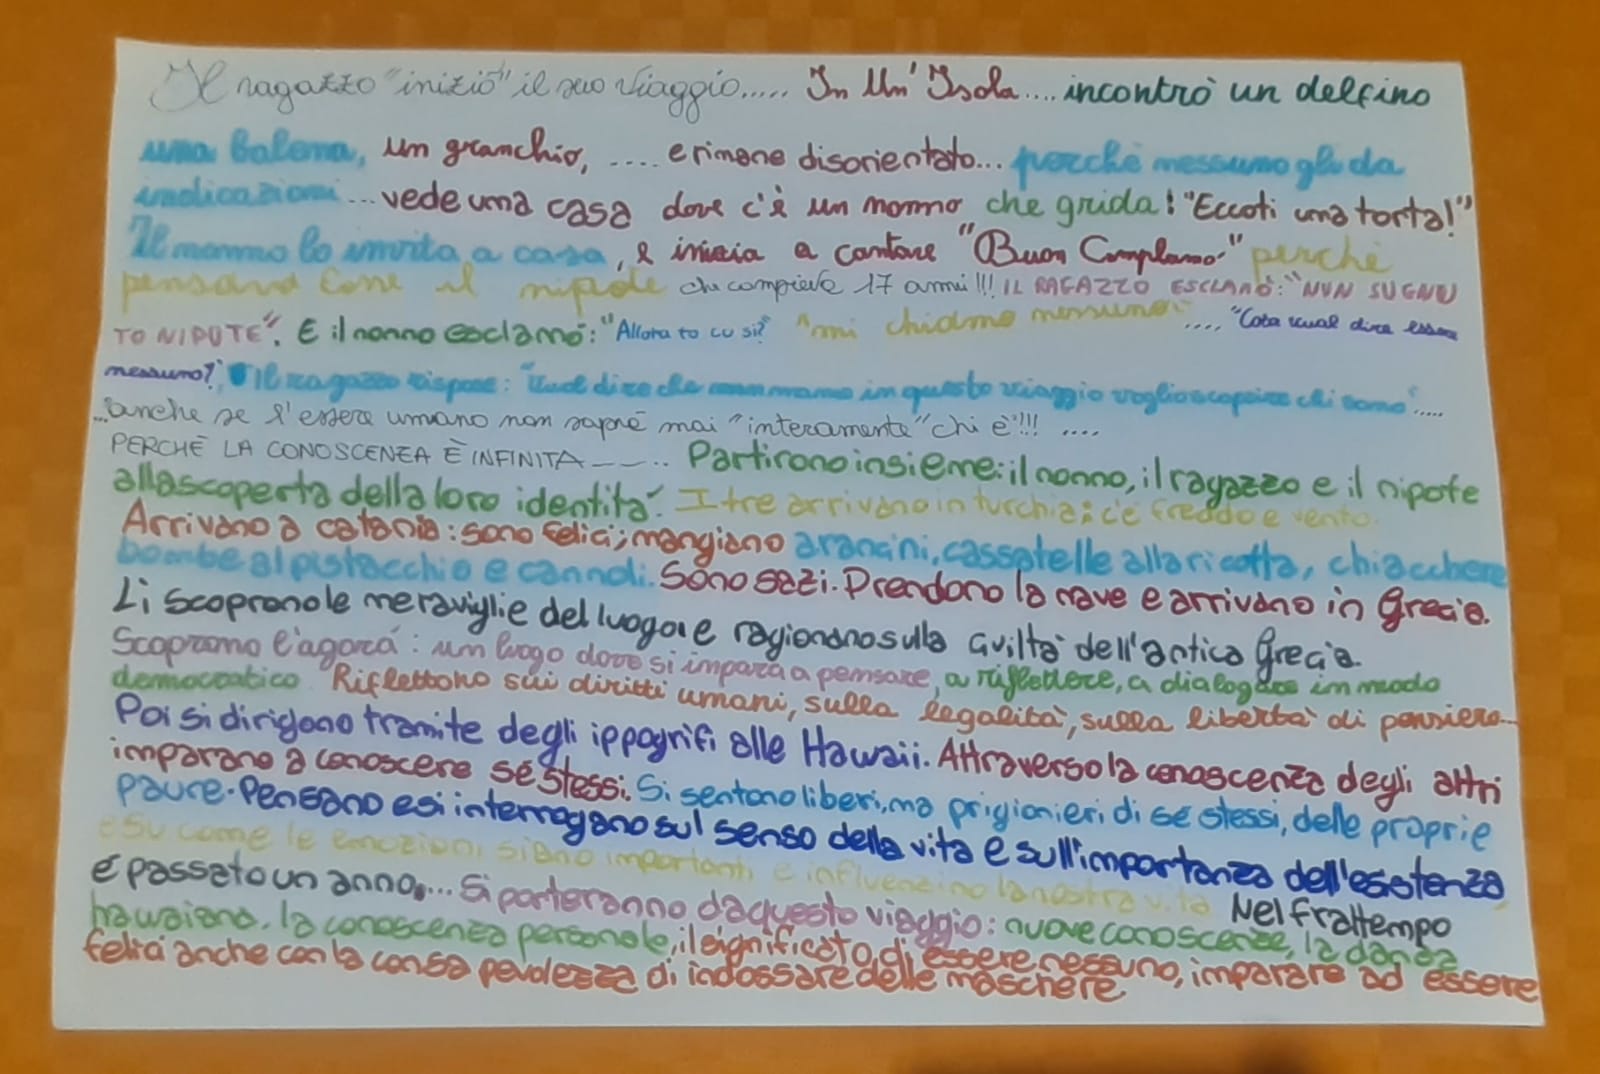 Il ragazzo "iniziò" il suo viaggio..... In Un' Isola.... incontrò un delfino
una balena, un granchio, .... e rimane disorientato... perchè nessuno gli da
indicazioni ... vede una casa dove c'è un nonno che grida! "Eccoti una torta!"
Il nonno lo invita a casa, e inizia a cantare "Buon Complanno" perchè
pensava fosse il nipote che compieva 17 anni!!! IL RAGAZZO ESCLAMÒ: "NUN SUGNU
TO NIPUTE". E il nonno esclamò: "Allora to cu si?" "mi chiamo nessuno" ...., "Cosa vual dire essere
nessuno?", Il ragazzo rispose: "Vuol dire che in questo viaggio voglio scoprire chi sono".....
...anche se l'essere umano non saprà mai "interamente" chi è"!!! ....
PERCHÈ LA CONOSCENZA È INFINITA ----.. Partirono insieme: il nonno, il ragazzo e il nipote
alla scoperta della loro identità. I tre arrivano in turchia; c'è freddo e vento.
Arrivano a catania: sono felici; mangiano arancini, cassatelle alla ricotta, chiacchere
bombe al pistacchio e cannoli. Sono sazi. Prendono la nave e arrivano in Grecia.
Lì scoprono le meraviglie del luogo e ragionano sulla civiltà dell'antica Grecia.
Scoprono l'agorà: un luogo dove si impara a pensare, a riflettere, a dialogare in modo
democratico. Riflettono sui diritti umani, sulla legalità, sulla libertà di pensiero...
Poi si dirigono tramite degli ippogrifi alle Hawaii. Attraverso la conoscenza degli altri
imparano a conoscere sé stessi. Si sentono liberi, ma prigionieri di sé stessi, delle proprie
paure. Pensano e si interrogano sul senso della vita e sull'importanza dell'esistenza
e su come le emozioni siano importanti e influenzino la nostra vita. Nel frattempo
è passato un anno.... Si porteranno da questo viaggio: nuove conoscenze, la danza
hawaiana, la conoscenza personale, il significato di essere nessuno, imparare ad essere
felici anche con la consapevolezza di indossare delle maschere.